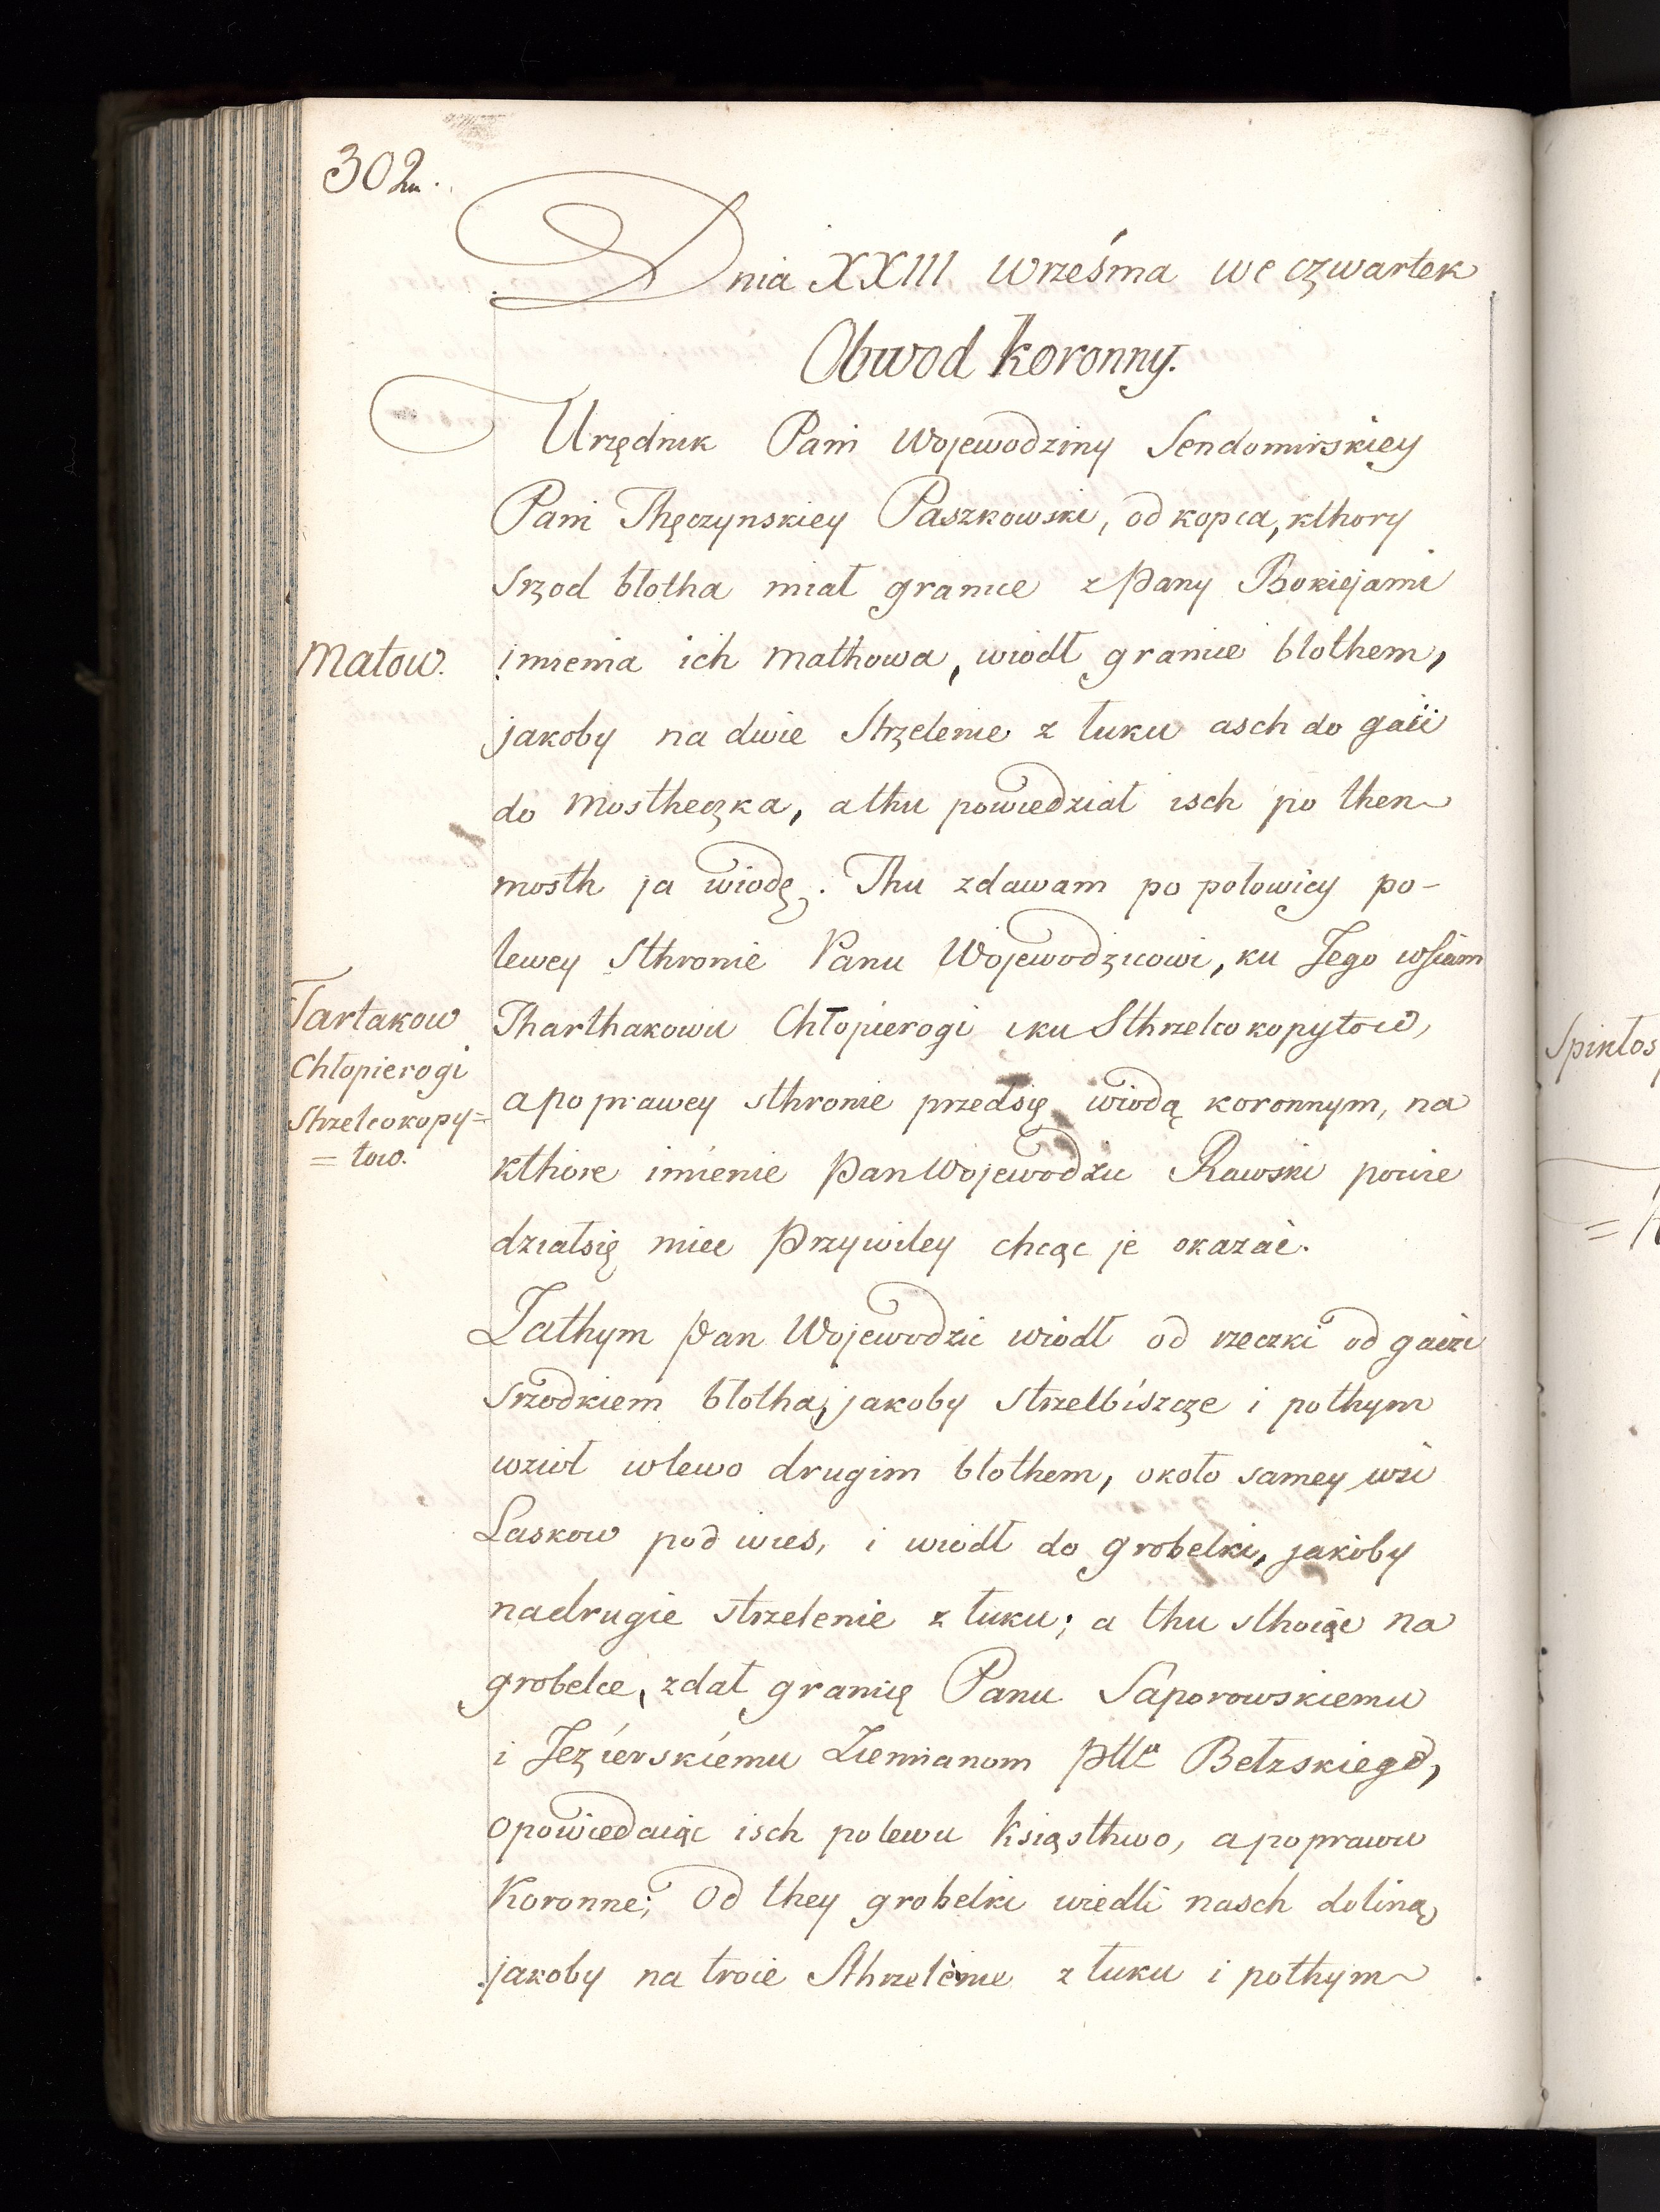 302.
Dnia XXIII Wrzesnia we czwartek
Obwod koronny.
Urzędnik Pani Wojewodziny Sendomirskiey
Pani Thęczynskiey Paszkowski, od kopca, kthory
srzod błotha miał granice z Pany Bokiejami
Matow.
imienia ich Mathowa, wiodł granice błothem,
jakoby na dwie Strzelenie z łuku asch do gaci
do Mostheczka, a thu powiedział isch po then
mosth ja wiodę. Thu zdawam po połowicy po-
lewey Sthronie Panu Wojewodzicowi, ku Jego wsiam
Tartakow
Chłopierogi
Strzelcokopy=
= tow.
Tharthakowu Chłopierogi i ku Sthrzelcokopytow,
a po prawey sthronie przedsię wiodą koronnym, na
kthore imienie Pan Wojewodzic Rawski powie
działsię miec Przywiley chcąc je okazać.
Zathym Pan Wojewodzic wiodł od rzeczki od gaczi
srzodkiem błotha, jakoby strzelbiszcze i pothym
wziół wlewo drugim błothem, około samey wsi
Laskow pod wies, i wiodł do grobelki, jakoby
nadrugie strzelenie z łuku; a thu sthoiąc na
grobelce, zdał granicę Panu Saporowskiemu
i Jezierskiemu Ziemianom Bełzskiego,
opowiedaiąc isch polewu księsthwo, a poprawu
Koronne; Od they grobelki wiedli nasch doliną,
jakoby na troie Sthrzelenie z łuku i pothym